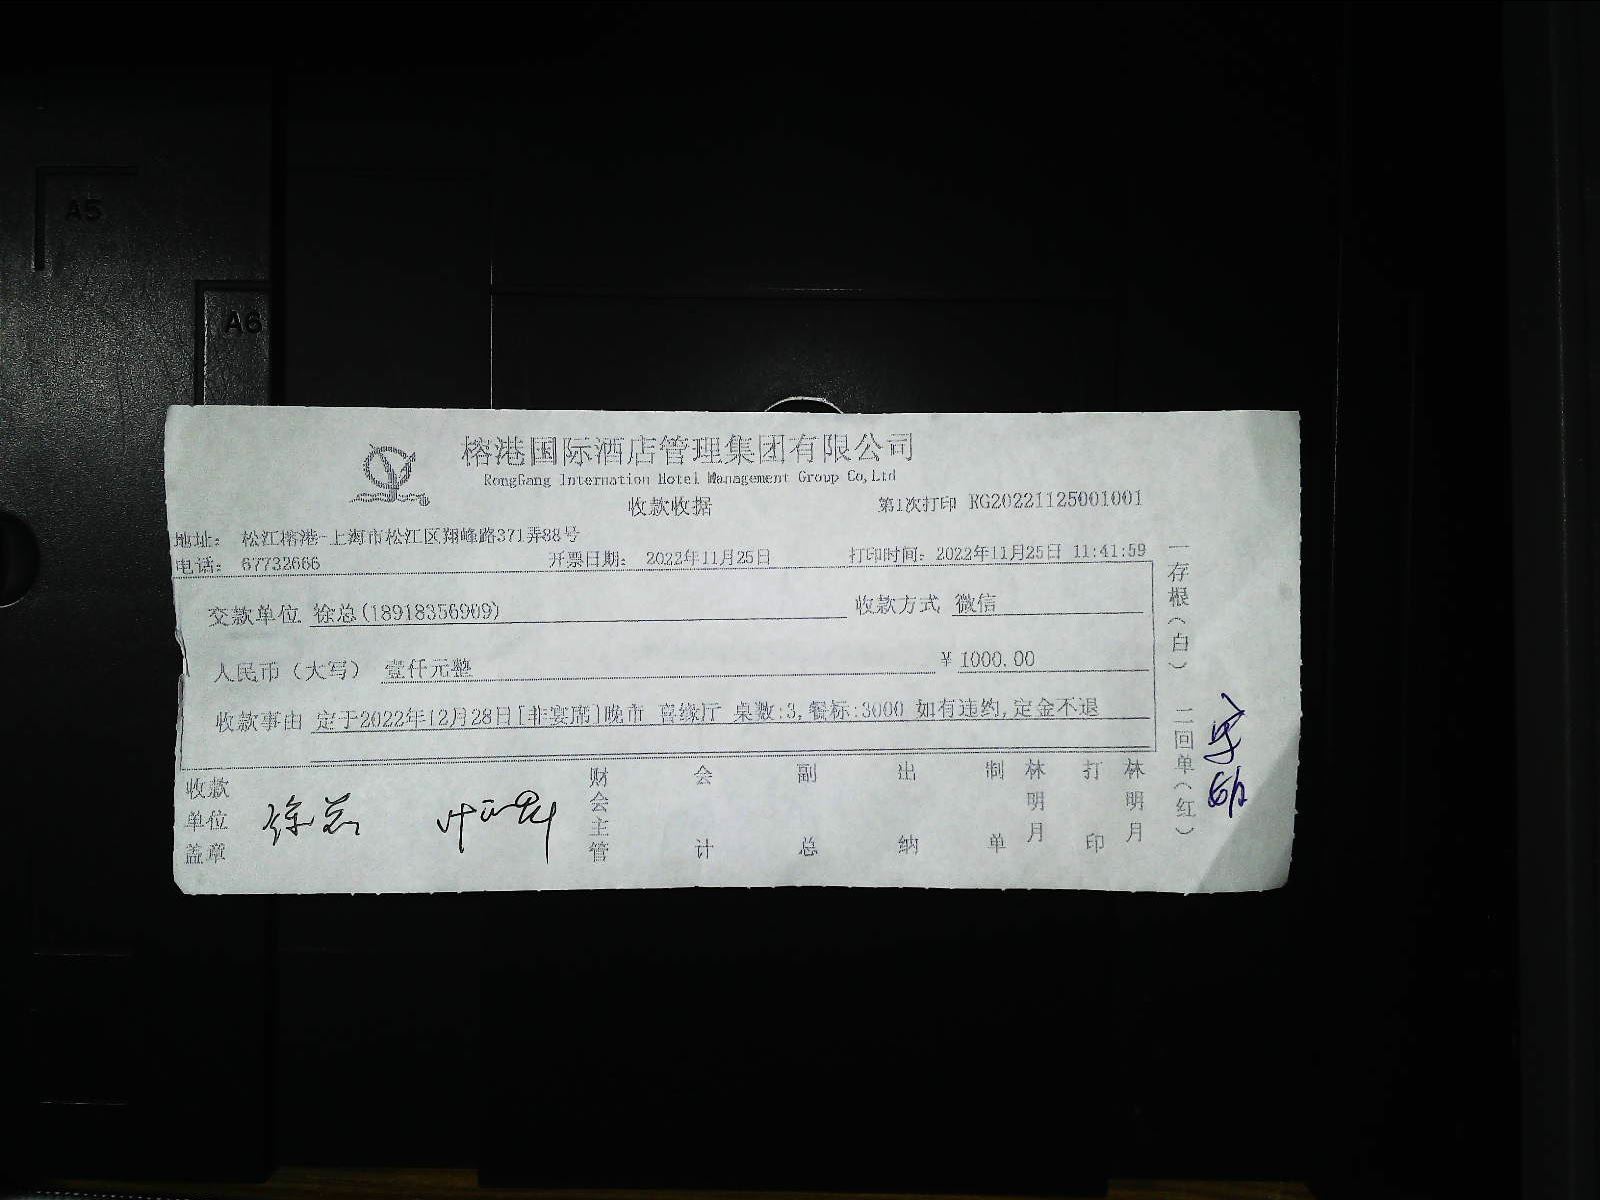 A5
A6
榕港国际酒店管理集团有限公司
RongGang Internation Hotel Management Group Co,Ltd
收款收据
第1次打印 RG20221125001001
地址： 松江榕港-上海市松江区翔峰路371弄88号
电话： 67732666 开票日期： 2022年11月25日 打印时间：2022年11月25日 11:41:59
交款单位 徐总(18918356909) 收款方式 微信
人民币（大写） 壹仟元整 ￥1000.00
收款事由 定于2022年12月28日[非宴席]晚市 喜缘厅 桌数:3,餐标:3000 如有违约,定金不退
收款单位盖章 徐总
财会主管 会计 副总 出纳 制单 林明月 打印 林明月
一存根（白）
二回单（红）